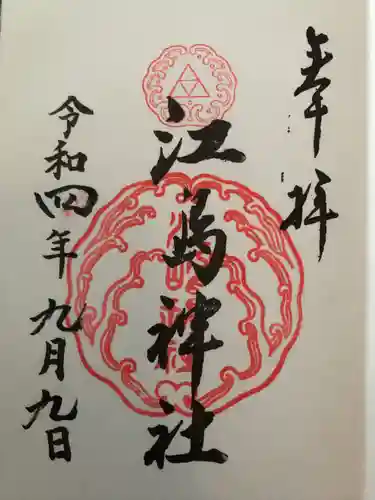 奉拝
江島神社
令和四年九月九日